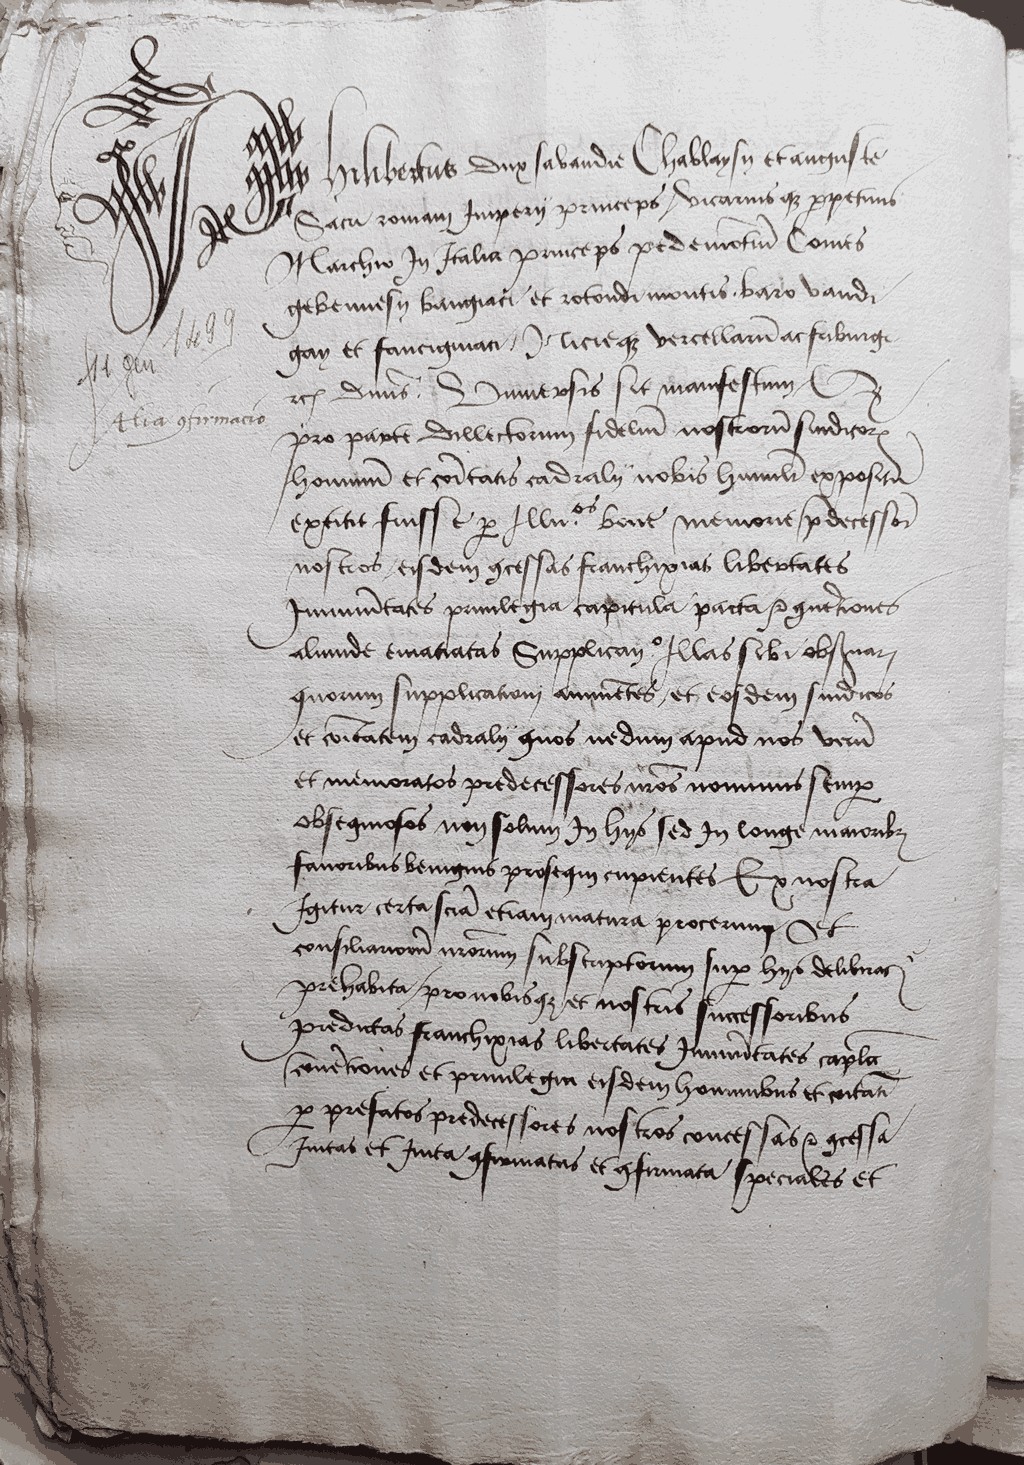 Philibertus dux sabaudie Chablaysij et auguste
Sacri romani Imperij princeps / vicariusqz ppetuus
Marchio In Italia princeps pedemōtiū Comes
gebennesij baugiaci et rotondi montis baro vaudi
gay et faucigniaci / Nicieqz vercellarū ac friburgi
1499
rc dn̄us. Universis sit manifestum / Q
Alia 9firmacio
pro parte dillectorum fideliū nostrorū sindicor
hominū et cōitatis cadralij nobis humilr̄ expositū
extitit fuisse p Illu.os bone memorie pdecessor
nostros / eisdem 9cessas franchixias libertates
Immuītates privilegia capitula pacta
aliunde Supplican.o Illas sibi obser
quorum supplicationj annuētes / et eosdem sindicos
et cōitatem cadralij quos nedum apud nos verū
et memoratos predecessores nr̄os novimus semp
obsequiosos non solum In hijs sed In longe maiorib
favoribus benignis prosequi cupientes Ex nostra
Igitur certa sciā etiam matura procerum Et
consiliariorū nr̄orum subscriptorum sup hijs deliberac
prehabita / pro nobisqz et nostris successoribus
predictas franchixias libertates Immuītates capla
cōuētiones et privilegia eisdem hominibus et cōitati
p prefatos predecessores nostros concessas 9cessa
Iuitas et Iuita 9firmatas et 9firmata speciales et